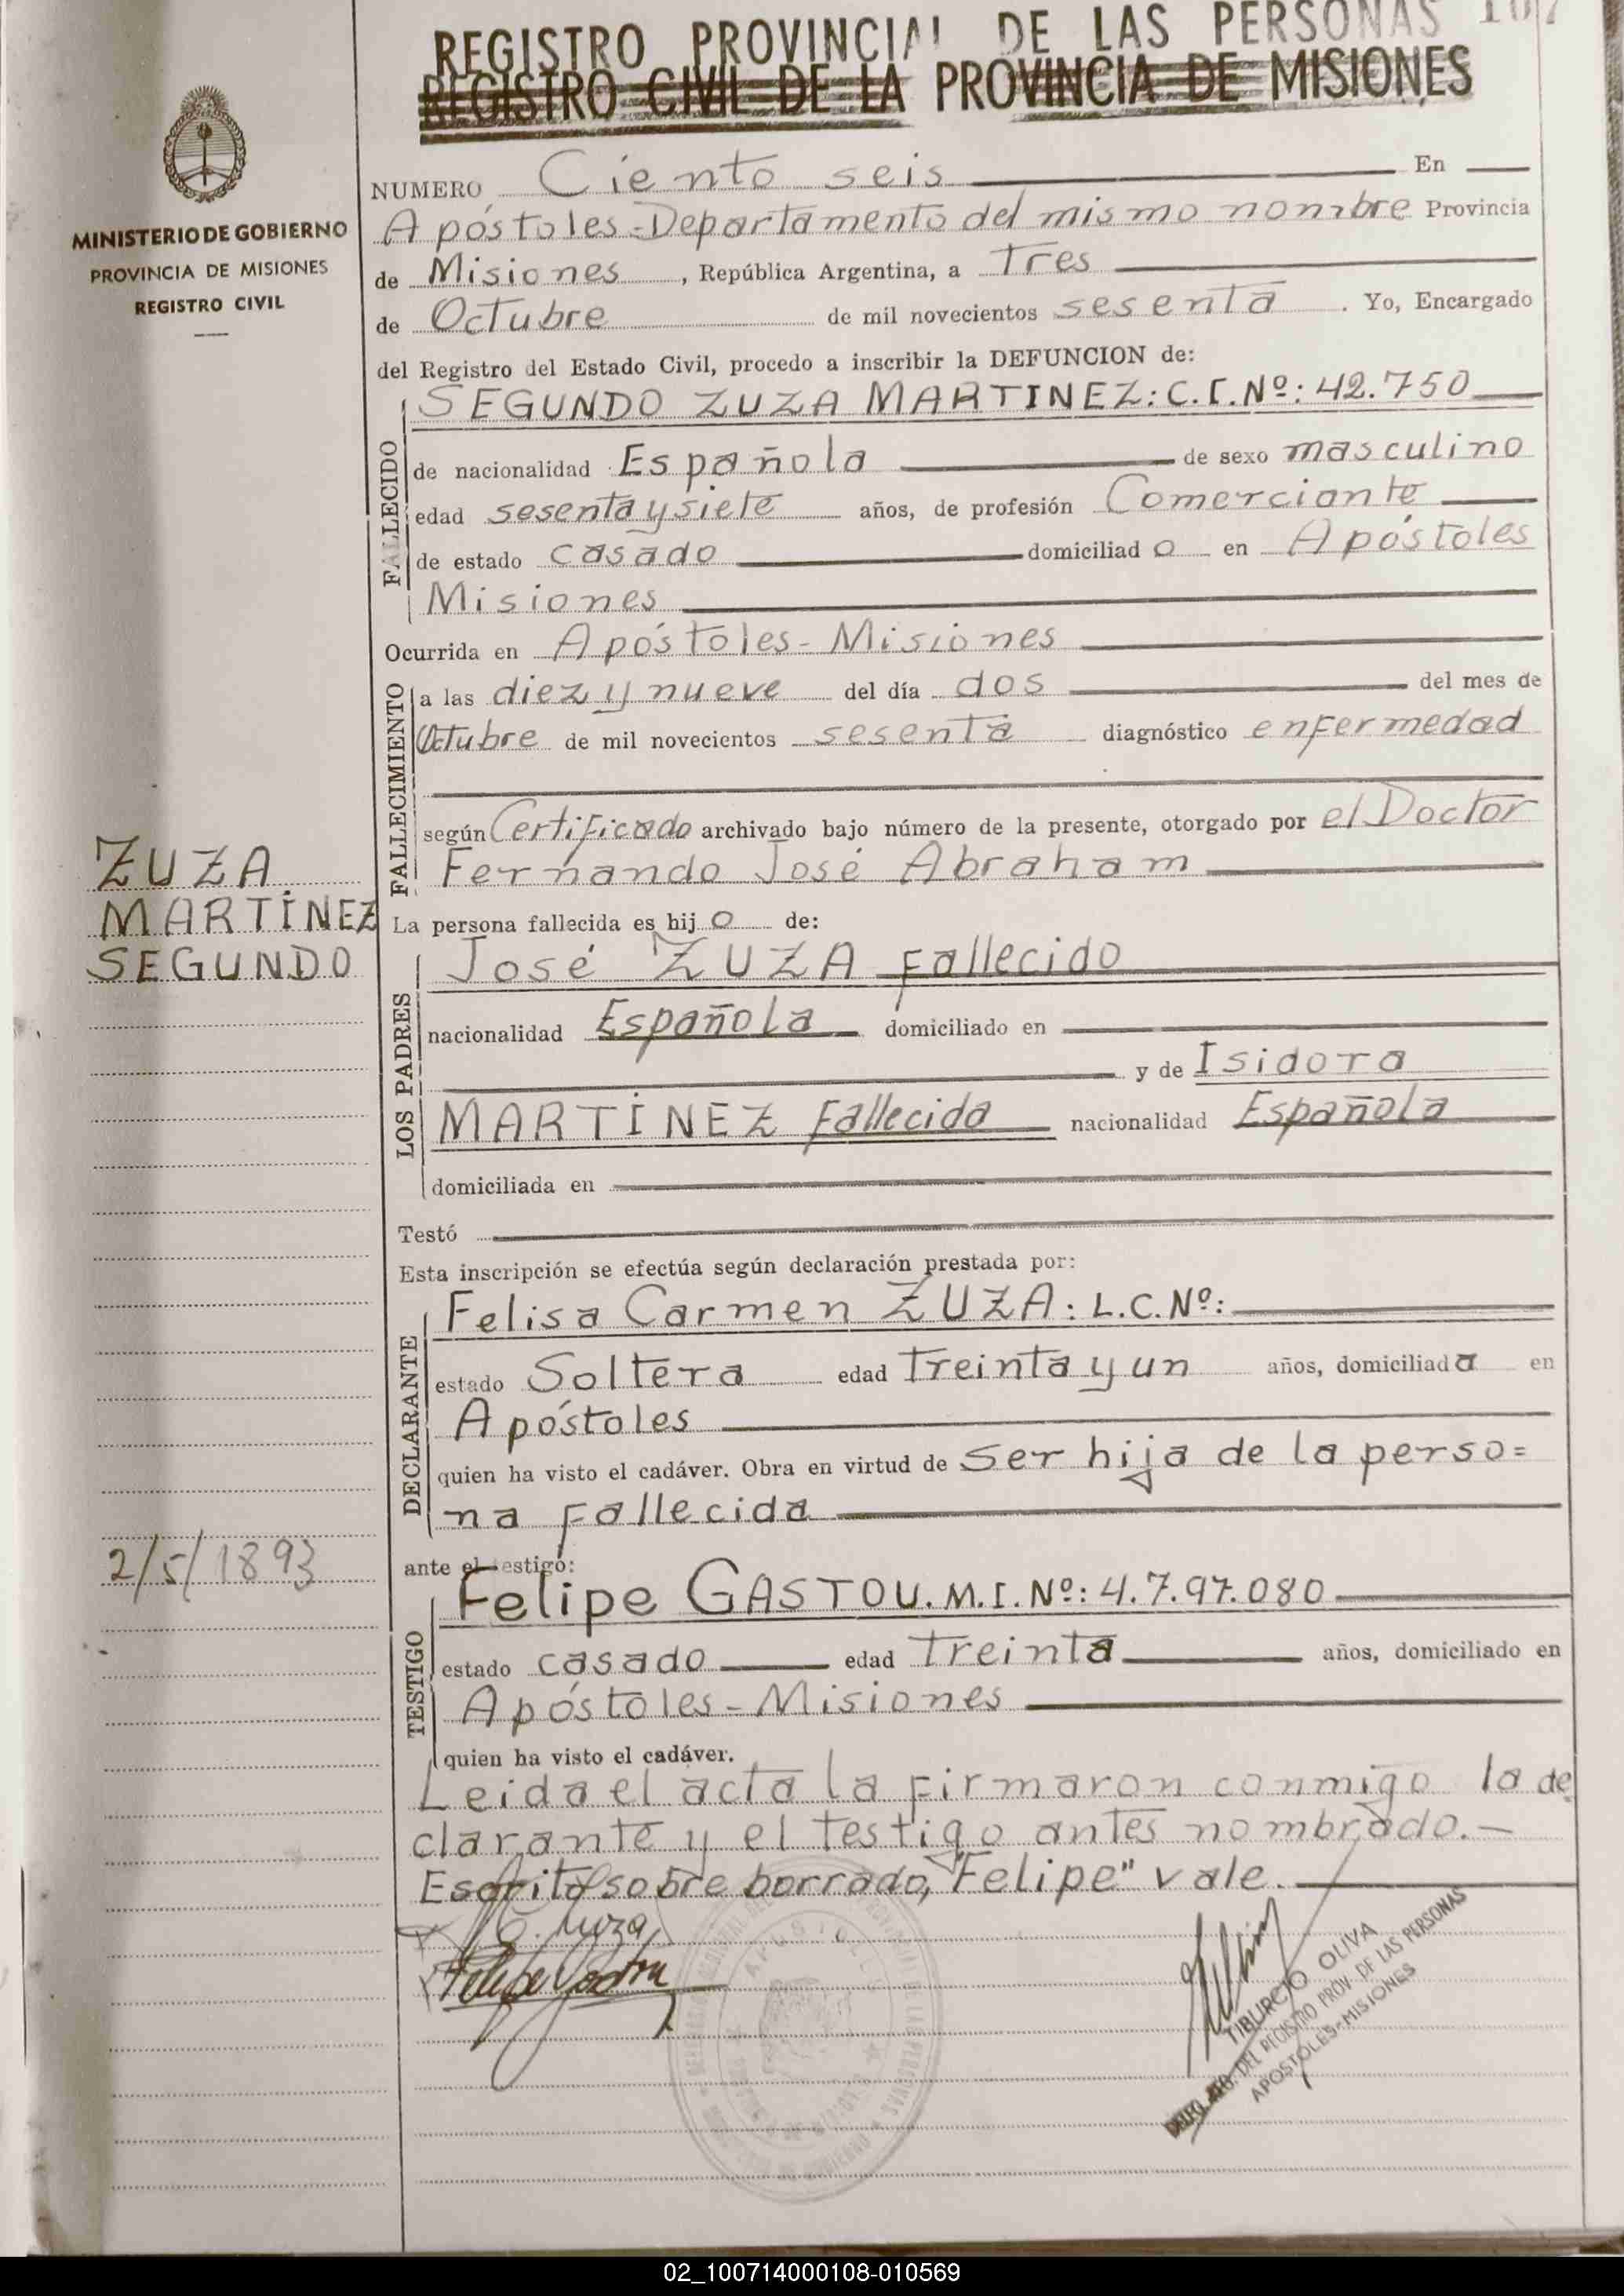 REGISTRO PROVINCIAL DE LAS PERSONAS 107
REGISTRO CIVIL DE LA PROVINCIA DE MISIONES
MINISTERIO DE GOBIERNO
PROVINCIA DE MISIONES
REGISTRO CIVIL
NUMERO Ciento seis En
Apóstoles-Departamento del mismo nombre Provincia
de Misiones, República Argentina, a Tres
de Octubre de mil novecientos sesenta. Yo, Encargado
del Registro del Estado Civil, procedo a inscribir la DEFUNCION de:
FALLECIDO
SEGUNDO ZUZA MARTINEZ: C.I.Nº: 42.750
de nacionalidad Española de sexo masculino
edad sesenta y siete años, de profesión Comerciante
de estado casado domiciliad o en Apóstoles
Misiones
Ocurrida en Apóstoles-Misiones
FALLECIMIENTO
a las diez y nueve del día dos del mes de
Octubre de mil novecientos sesenta diagnóstico enfermedad
según Certificado archivado bajo número de la presente, otorgado por el Doctor
Fernando José Abraham
ZUZA
MARTÍNEZ
SEGUNDO
La persona fallecida es hij o de:
LOS PADRES
José ZUZA fallecido
nacionalidad Española domiciliado en
y de Isidora
MARTÍNEZ fallecida nacionalidad Española
domiciliada en
Testó
Esta inscripción se efectúa según declaración prestada por:
DECLARANTE
Felisa Carmen ZUZA: L.C.Nº:
estado Soltera edad Treinta y un años, domiciliad a en
Apóstoles
quien ha visto el cadáver. Obra en virtud de ser hija de la perso=
na fallecida
2/5/1893
ante el testigo:
TESTIGO
Felipe GASTOU. M.I.Nº: 4.7.97.080
estado casado edad treinta años, domiciliado en
Apóstoles-Misiones
quien ha visto el cadáver.
Leida el acta la firmaron conmigo la de
clarante y el testigo antes nombrado.-
Escrito sobre borrado, "Felipe" vale.
TIBURCIO OLIVA
DELEGADO. DEL REGISTRO PROV. DE LAS PERSONAS
APOSTOLES-MISIONES
02_100714000108-010569